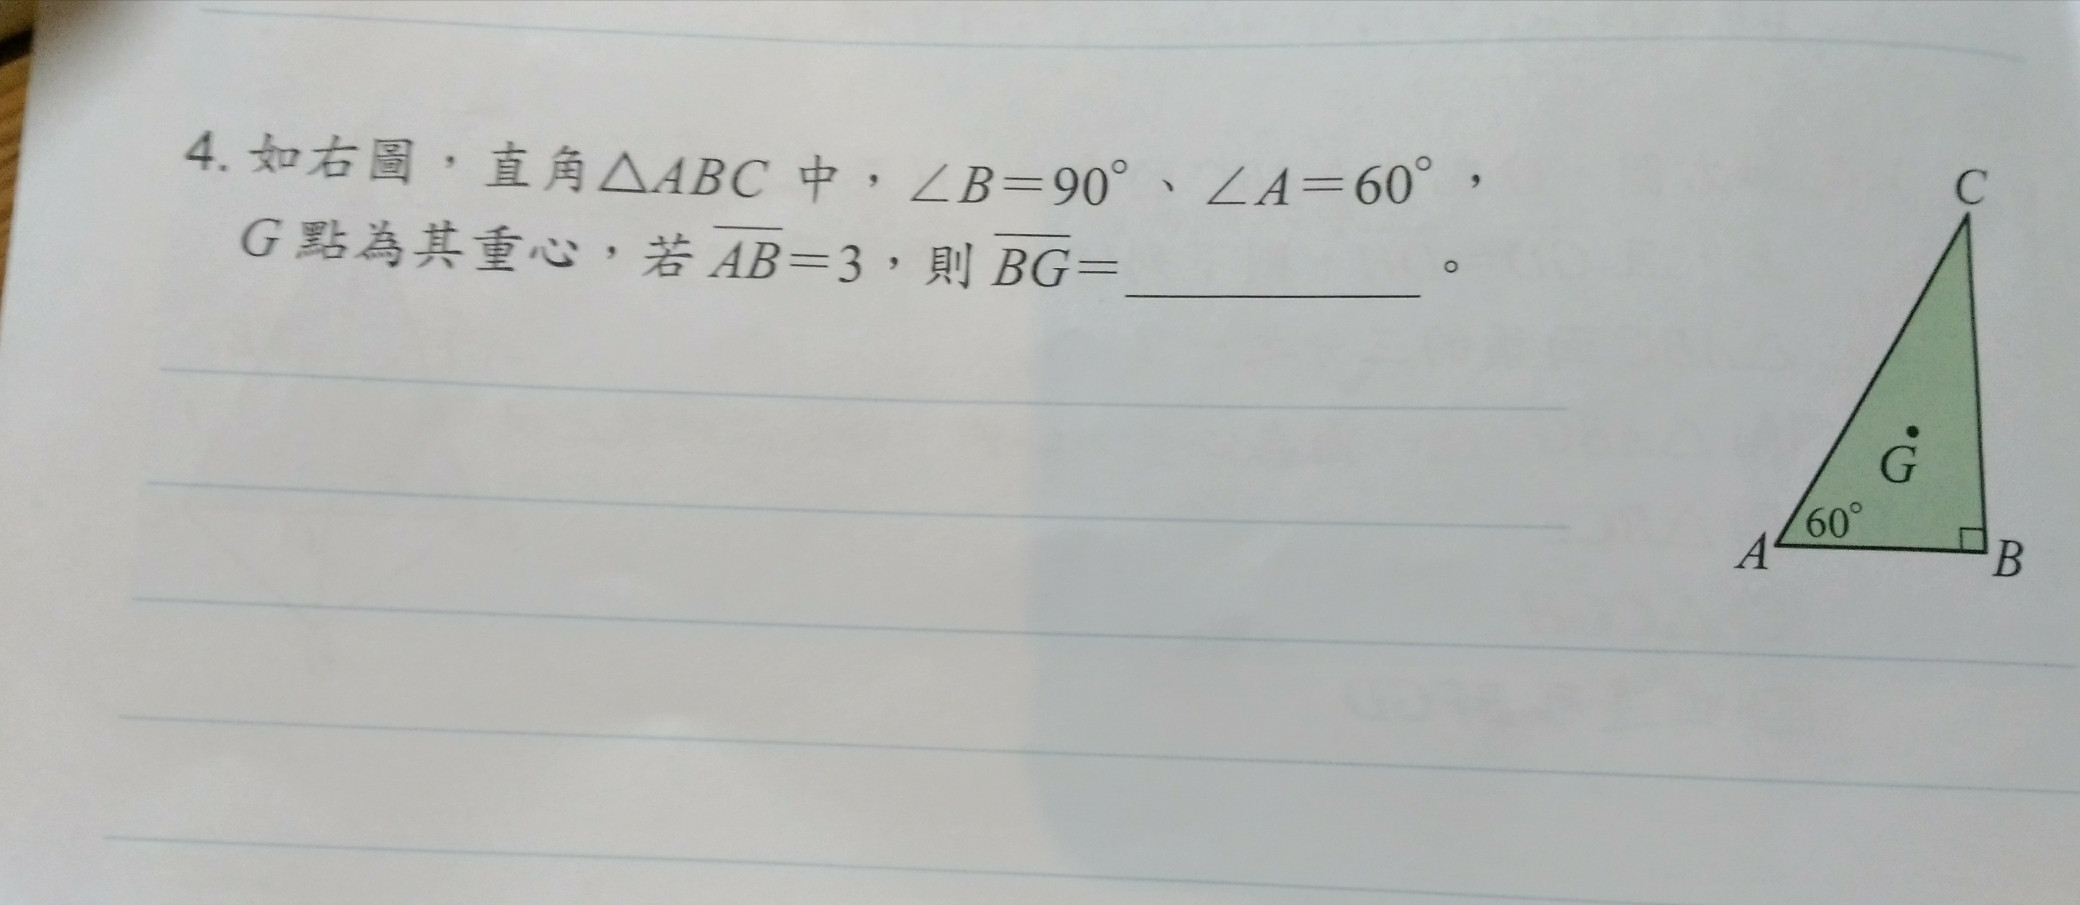 4. 如右圖，直角△ABC 中，∠B=90°、∠A=60°，
G 點為其重心，若 AB=3，則 BG=__________。
C
G
60°
A
B